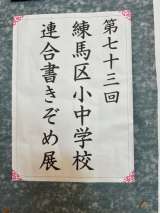 第七十三回
練馬区小中学校
連合書きぞめ展